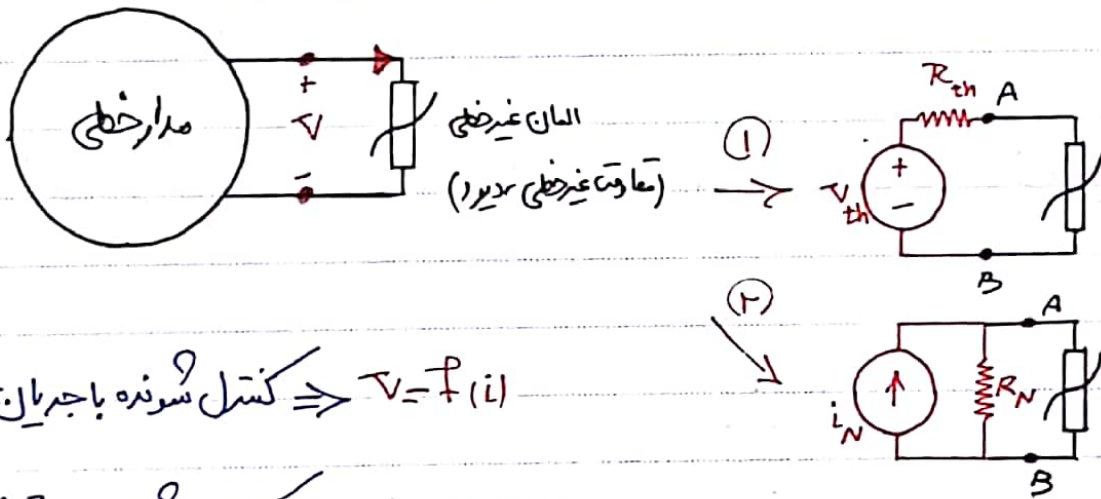 مدار خطی
+
V
-
المان غیرخطی
(مقاومت غیرخطی دیود)
①
R_th
A
+
-
V_th
B
②
A
i_N
R_N
B
کنترل شونده با جریان ⇒ V = f(i)